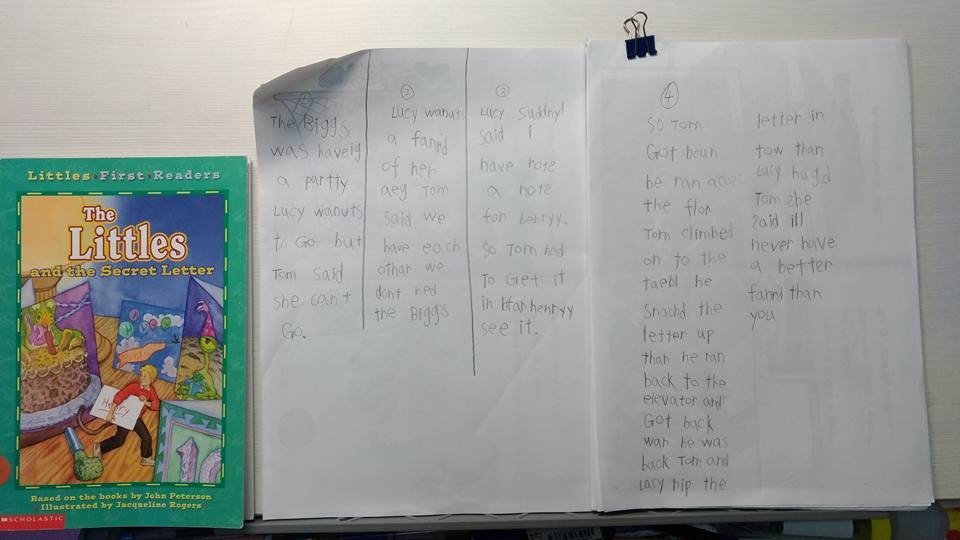 Littles First Readers
The
Littles
and the Secret Letter
Henry
10
Based on the books by John Peterson
Illustrated by Jacqueline Rogers
SCHOLASTIC
1
The Biggs
was haveig
a partty
Lucy wanuts
to Go. but
Tom said
she can't
Go.
2
Lucy wanuts
a fannd
of her
aeg Tom
said we
have each
othar we
dont ned
the Biggs
3
Lucy suddnyl
said i
have note
a note
for henryy.
So Tom had
To Get it
in bfan henryy
see it.
4
SO Tom
Got boun
he ran acors
the flor
Tom climbed
on to the
taebl he
Snachd the
letter up
than he ran
back to the
elevator and
Got back
wan he was
back Tom and
Lacy rip the
letter in
tow than
Lucy hugd
Tom She
Said ill
never have
a better
fannd than
you